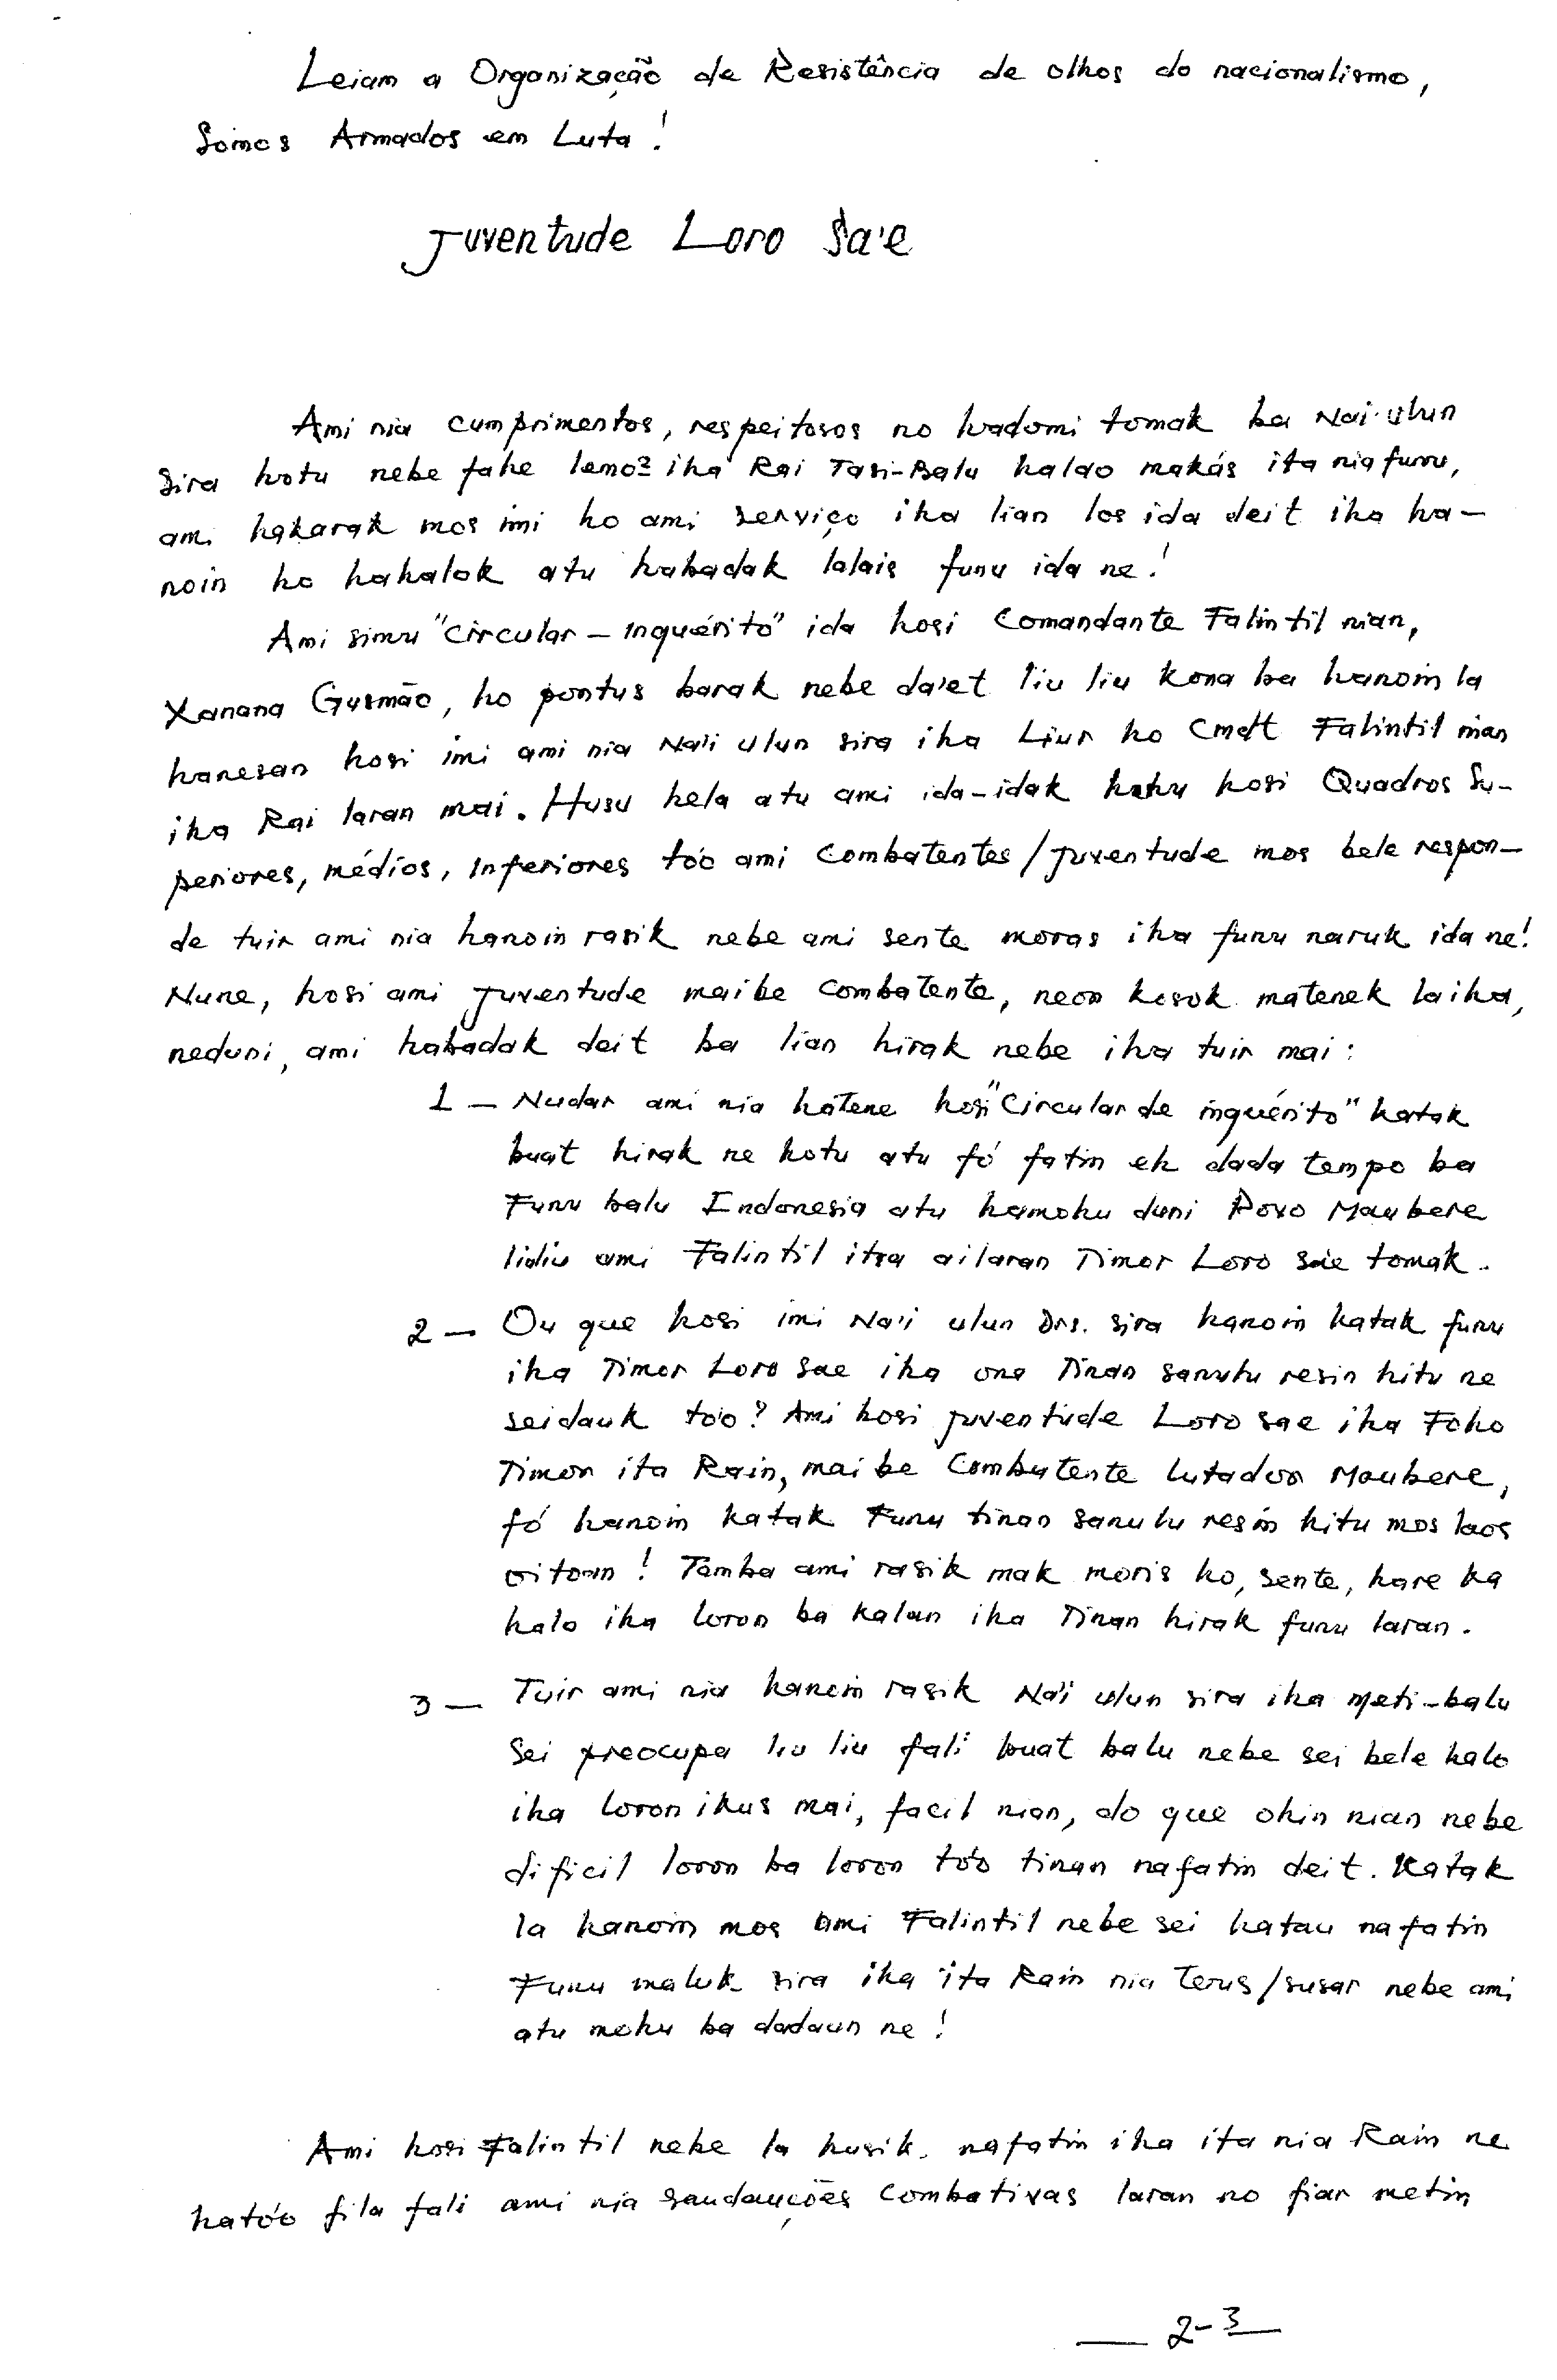 Leiam a Organização de Resistência de olhos do nacionalismo,
Somos Armados em Luta!
Juventude Loro Sa'e
Ami nia cumprimentos, respeitosos no hadomi tomak ba Nai-ulun
Sira hotu nebe fahe lemo2 iha Rai Tasi-Balu halao makás ita nia funu,
ami hakarak mos imi ho ami serviço iha lian los ida deit iha ha-
noin ho hahalok atu habadak lalais funu ida ne!
Ami simu "Circular - Inquérito" ida hosi Comandante Falintil nian,
Xanana Gusmão, ho pontus barak nebe da'et liu liu kona ba hanoin la
hanesan hosi imi ami nia Na'i ulun sira iha Liur ho Cmdt Falintil nian
iha Rai laran mai. Husu hela atu ami ida-idak hahu hosi Quadros Su-
periores, médios, Inferiores tóo ami Combatentes/Juventude mos bele respon-
de tuir ami nia hanoin rasik nebe ami sente moras iha funu naruk ida ne!
Nune, hosi ami Juventude maibe Combatente, neon kosok matenek laiha,
neduni, ami habadak deit ba lian hirak nebe iha tuir mai:
1 - Nudar ami nia hatene hosi "Circular de inquérito" katak
buat hirak ne hotu atu fó fatin eh dada tempo ba
Funu balu Indonesia atu hamohu duni Povo Maubere
liuliu ami Falintil iha ailaran Timor Loro Sae tomak.
2 - Ou que hosi imi Na'i ulun Drs. sira hanoin katak funu
iha Timor Loro Sae iha ona Tinan sanulu resin hitu ne
seidauk tóo? Ami hosi juventude Loro sae iha Foho
Timor ita Rain, mai be Combatente lutador Maubere,
fó hanoin katak Funu tinan sanulu resin hitu mos laos
oitoan! Tamba ami rasik mak moris ho, sente, hare ka
halo iha loron ba kalan iha Tinan hirak funu laran.
3 - Tuir ami nia hanoin rasik Na'i ulun sira iha meti-balu
Sei preocupa liu liu fali buat balu nebe sei bele halo
iha loron ikus mai, facil nian, do que ohin nian nebe
dificil loron ba loron tóo tinan nafatin deit. Katak
la hanoin mos ami Falintil nebe sei hatau nafatin
Funu maluk sira iha ita Rain nia Terus/susar nebe ami
atu mohu ba dadaun ne!
Ami hosi Falintil nebe la husik nafatin iha ita nia Rain ne
hatóo fila fali ami nia saudauções Combativas laran no fiar metin
2-3